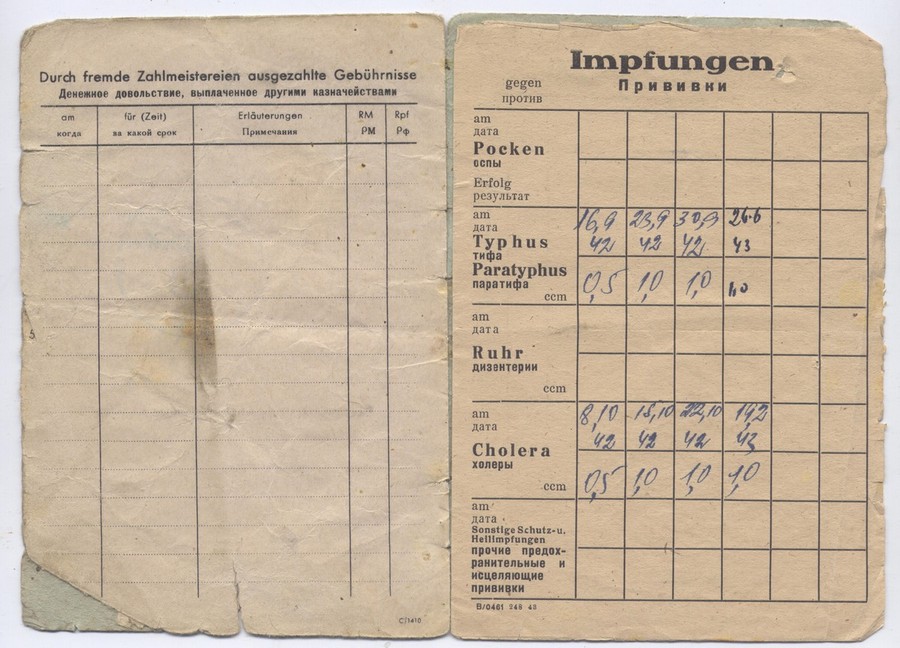 Durch fremde Zahlmeistereien ausgezahlte Gebührnisse
Денежное довольствие, выплаченное другими казначействами
am für (Zeit) Erläuterungen RM Rpf
когда за какой срок Примечания РМ Рф
C/1410
Impfungen
gegen Прививки
против
am
дата
Pocken
оспы
Erfolg
результат
am 16,9 23,9 30,9 26.6
дата
Typhus 42 42 42 43
тифа
Paratyphus
паратифа 0,5 1,0 1,0 1,0
ccm
am
дата
Ruhr
дизентерии
ccm
am 8,10 15,10 22,10 19,2
дата
42 42 42 43
Cholera
холеры
ccm 0,5 1,0 1,0 1,0
am
дата
Sonstige Schutz-u.
Heilimpfungen
прочие предох-
ранительные и
исцеляющие
прививки
B/0461 248 43